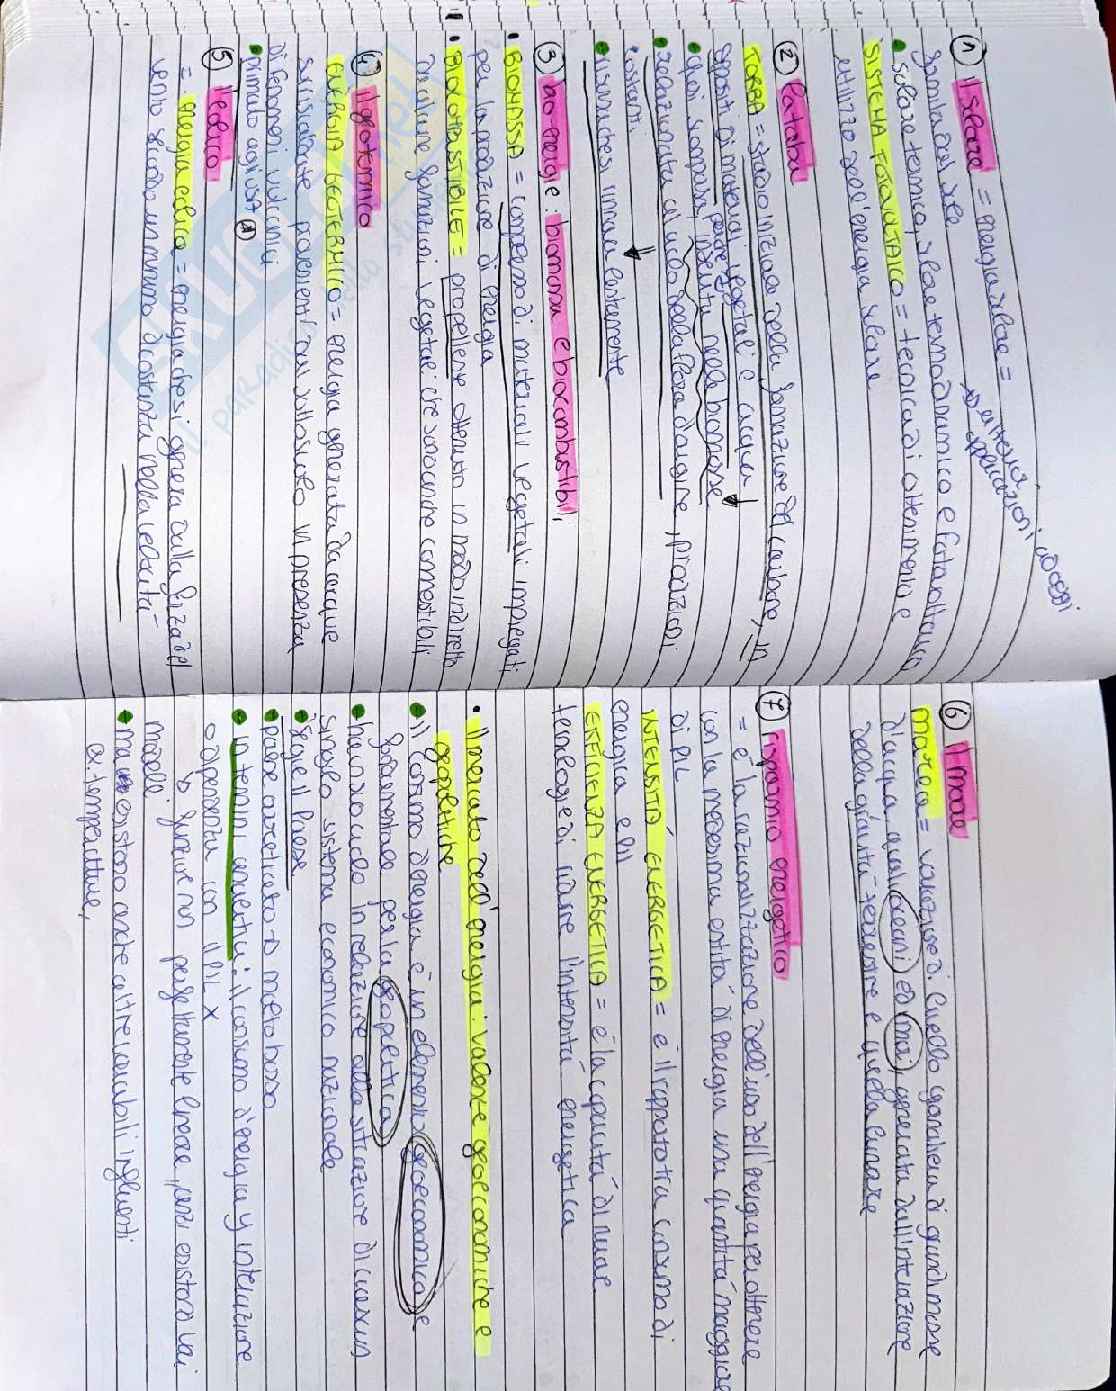 ① Il solare = energia solare =
fornita dal sole → esistenti applicazioni ad oggi
• solare termico, solare termodinamico e fotovoltaico
SISTEMA FOTOVOLTAICO = tecnica di ottenimento e
utilizzo dell'energia solare
② la torba
TORBA = stadio iniziale della formazione del carbone, in
depositi di materiali vegetali e acquei
• quasi scomparsa, perde nelle biomasse
• relazionata al ruolo della fibra d'argine, produzioni
costanti.
• risorsa che si rinnova lentamente
③ bio energie: biomassa e biocombustibili
• BIOMASSA = complesso di materiali vegetali impiegati
per la produzione di energia
• BIOCOMBUSTIBILE = propellene ottenuto in modo indiretto
da alcune formazioni vegetali che sono anche comestibili
④ Il geotermico
ENERGIA GEOTERMICO = energia generata da acque
surriscaldate provenienti dal sottosuolo in presenza
di fenomeni vulcanici
• primato ad ausit
⑤ l'eolico
= energia eolica = energia che si genera dalla forza del
vento secondo un minimo di costanza nella velocità
⑥ Il mare
marea = variazione di livello grandiera di grandi masse
d'acqua quali oceani ed mari, generata dall'interazione
della gravità terrestre e quella lunare
⑦ risparmio energetico
= è la razionalizzazione dell'uso dell'energia per ottenere
con la medesima entità di energia una quantità maggiore
di PIL
INTENSITÀ ENERGETICA = è il rapporto tra consumo di
energia e PIL
EFFICIENZA ENERGETICA = è la capacità di nuove
tecnologie di ridurre l'intensità energetica
• Il mercato dell'energia: valente geoeconomiche e
geopolitiche
• Il consumo d'energia è in elemento geoeconomico e
fondamentale per la geopolitica
• ha in ruolo in relazione alla situazione di ciascun
singolo sistema economico nazionale
• segue il Paese
• paese arretrato → molto basso
• in termini quantit.: il consumo d'energia y interazione
o dipendenza con il PIL x
↳ funzione non perfettamente lineare, però esistono vari
modelli
• ma esistono anche altre variabili influenti
ex. temperature,